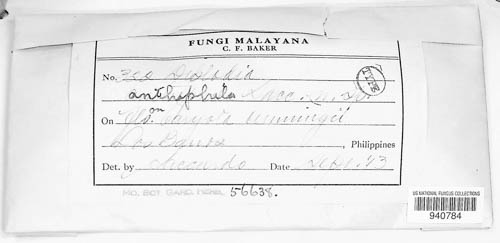 FUNGI MALAYANA
C. F. BAKER
No. 350 Diplodia
anthophila Sacc.
TYPE
On
Los Banos, Philippines
Det. by Saccardo Date
MO. BOT. GARD. HERB. 56638.
US NATIONAL FUNGUS COLLECTIONS
940784